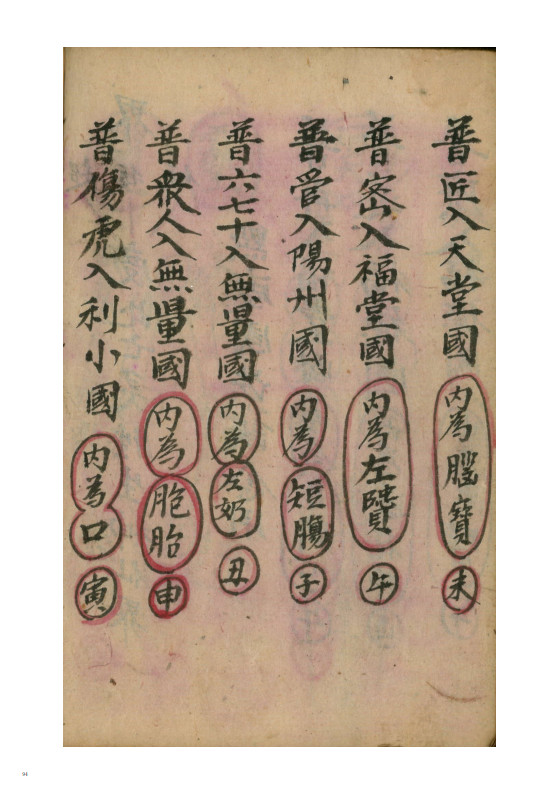 普匠入天堂國 內為膣寶 未
普密入福堂國 內為左賢 午
普管入陽州國 內為短腸 子
普六七十入無量國 內為左奶 丑
普眾人入無量國 內為胞胎 申
普傷虎入利小國 內為口 寅
94